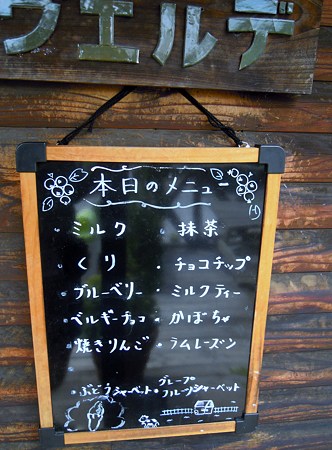 ヴェルデ
本日のメニュー
・ミルク ・抹茶
・くり ・チョコチップ
・ブルーベリー ・ミルクティー
・ベルギーチョコ ・かぼちゃ
・焼きりんご ・ラムレーズン
・ぶどうシャーベット ・グレープフルーツシャーベット